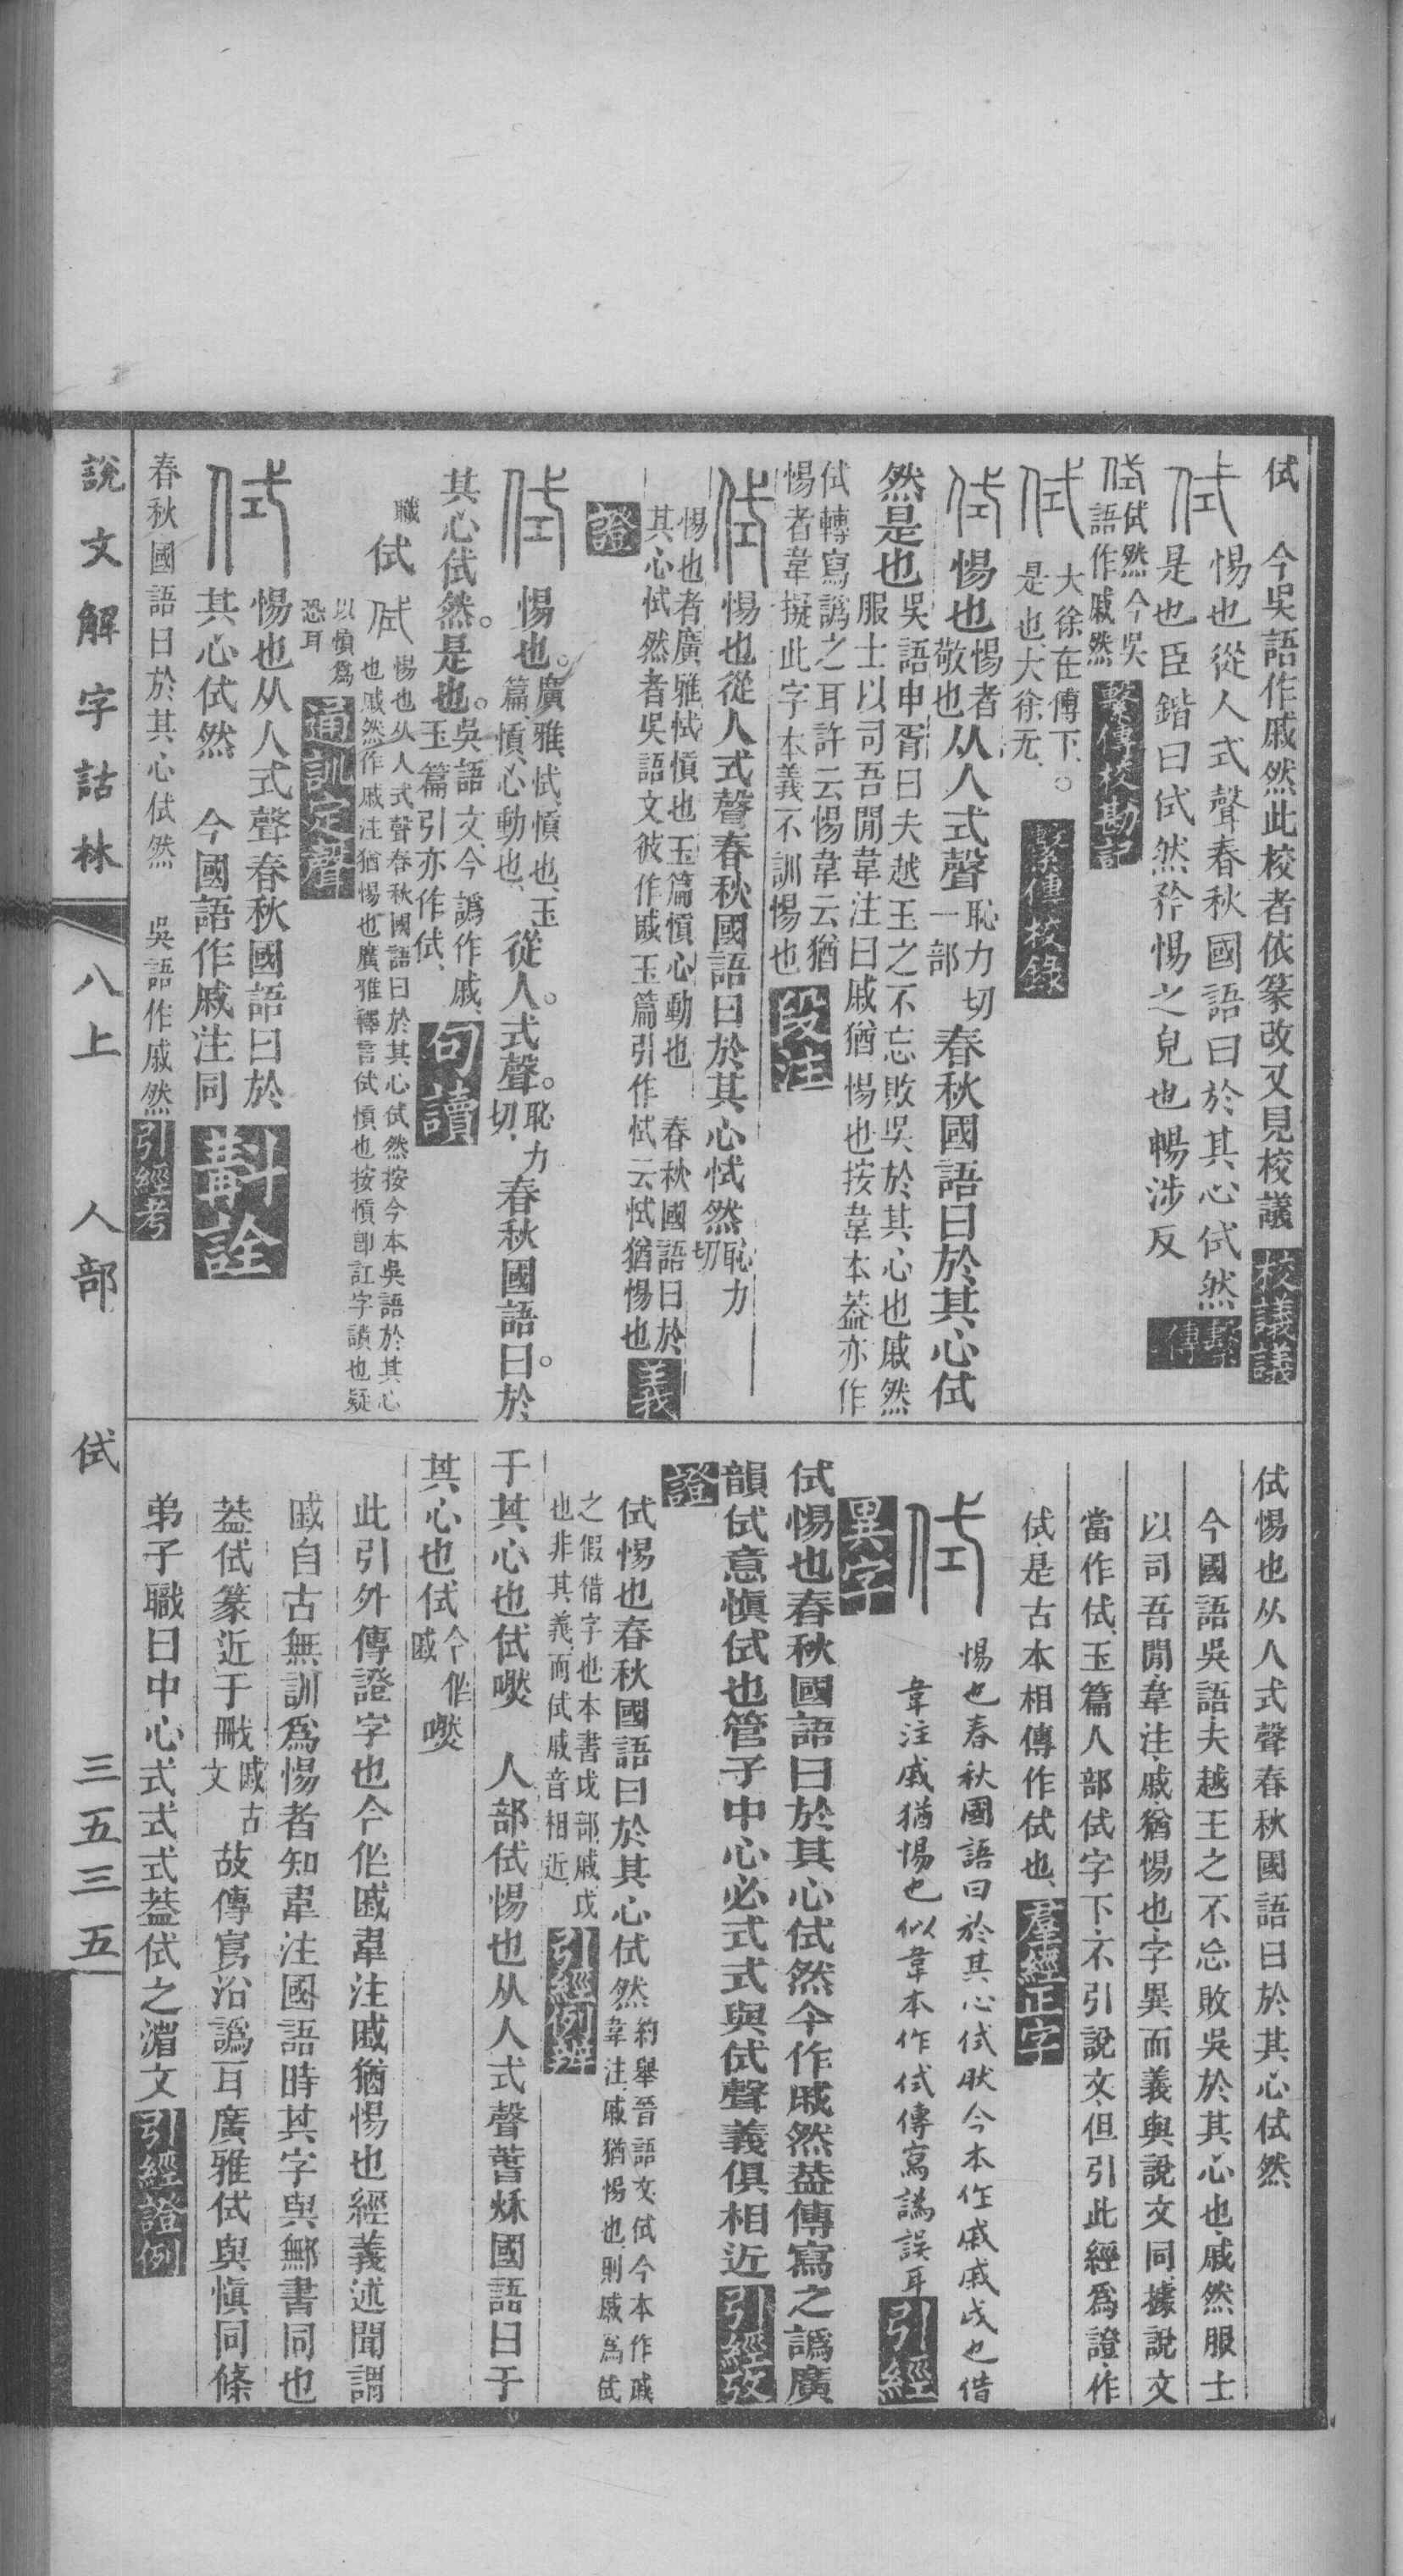 侙　今吳語作戚然此校者依篆改又見校議　校議議
惕也從人式聲春秋國語曰於其心侙然　繫傳
是也臣鍇曰侙然矜惕之皃也暢涉反
侙然今吳
語作戚然　繫傳校勘記
大徐在傳下、○
是也、大徐无、　繫傳校錄
惕也惕者敬也从人式聲恥力切一部春秋國語曰於其心侙
然是也吳語申胥曰夫越王之不忘敗吳於其心也戚然
服士以司吾閒韋注曰戚猶惕也按韋本葢亦作
侙轉寫譌之耳許云惕韋云猶
惕者韋擬此字本義不訓惕也　段注
惕也從人式聲春秋國語曰於其心恜然恥力切
惕也者廣雅恜慎也玉篇慎心動也　春秋國語曰於
其心恜然者吳語文彼作戚玉篇引作恜云恜猶惕也　義
證
惕也。廣雅、恜、慎也、玉篇、慎、心動也、從人。式聲。恥力切、春秋國語曰。於
其心侙然。是也。吳語文、今譌作戚、玉篇引亦作侙、　句讀
職　侙　惕也从人式聲春秋國語曰於其心侙然按今本吳語於其心
也戚然作戚注猶惕也廣雅釋言侙慎也按慎卽訌字讀也疑
以慎爲
恐耳　通訓定聲
惕也从人式聲春秋國語曰於
其心侙然　今國語作戚注同　斠詮
春秋國語曰於其心侙然　吳語作戚然　引經考
侙惕也从人式聲春秋國語曰於其心侙然
今國語吳語、夫越王之不忘敗吳於其心也、戚然服士
以司吾閒、韋注、戚、猶惕也、字異而義與說文同、據說文
當作侙、玉篇人部侙字下、不引說文、但引此經爲證、作
侙、是古本相傳作侙也、　羣經正字
惕也春秋國語曰於其心侙肰今本作戚戚戉也借
韋注戚猶惕也似韋本作侙傳寫譌誤耳　引經
異字
侙惕也春秋國語曰於其心侙然今作戚然葢傳寫之譌廣
韻侙意慎侙也管子中心必式式與侙聲義俱相近　引經攷
證
侙惕也春秋國語曰於其心侙然約舉晉語文侙今本作戚
韋注、戚猶惕也、則戚爲侙
之假借字也本書戉部、戚、戉
也非其義、而侙戚音相近、　引經例辨
于其心也侙嘫　人部侙惕也从人式聲萅秌國語曰于
其心也侙今作戚嘫
此引外傳證字也今作戚韋注戚猶惕也經義述聞謂
戚自古無訓爲惕者知韋注國語時其字與鄦書同也
葢侙篆近于𢧢戚古文故傳寫沿譌耳廣雅侙與愼同條
弟子職曰中心式式式葢侙之渻文　引經證例
說文解字詁林　八上　人部　侙　三五三五